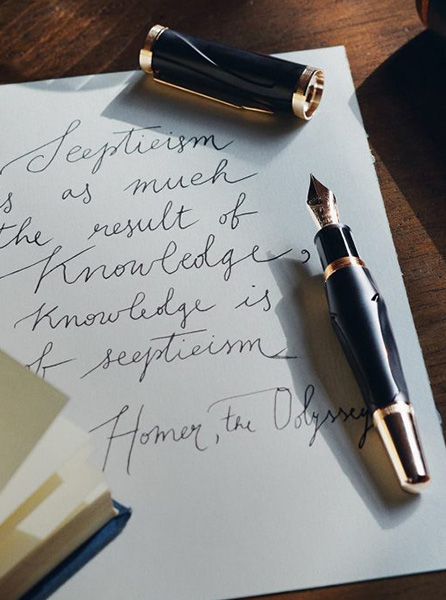 Scepticism
is as much
the result of
Knowledge,
Knowledge is
of scepticism
Homer, the Odyssey